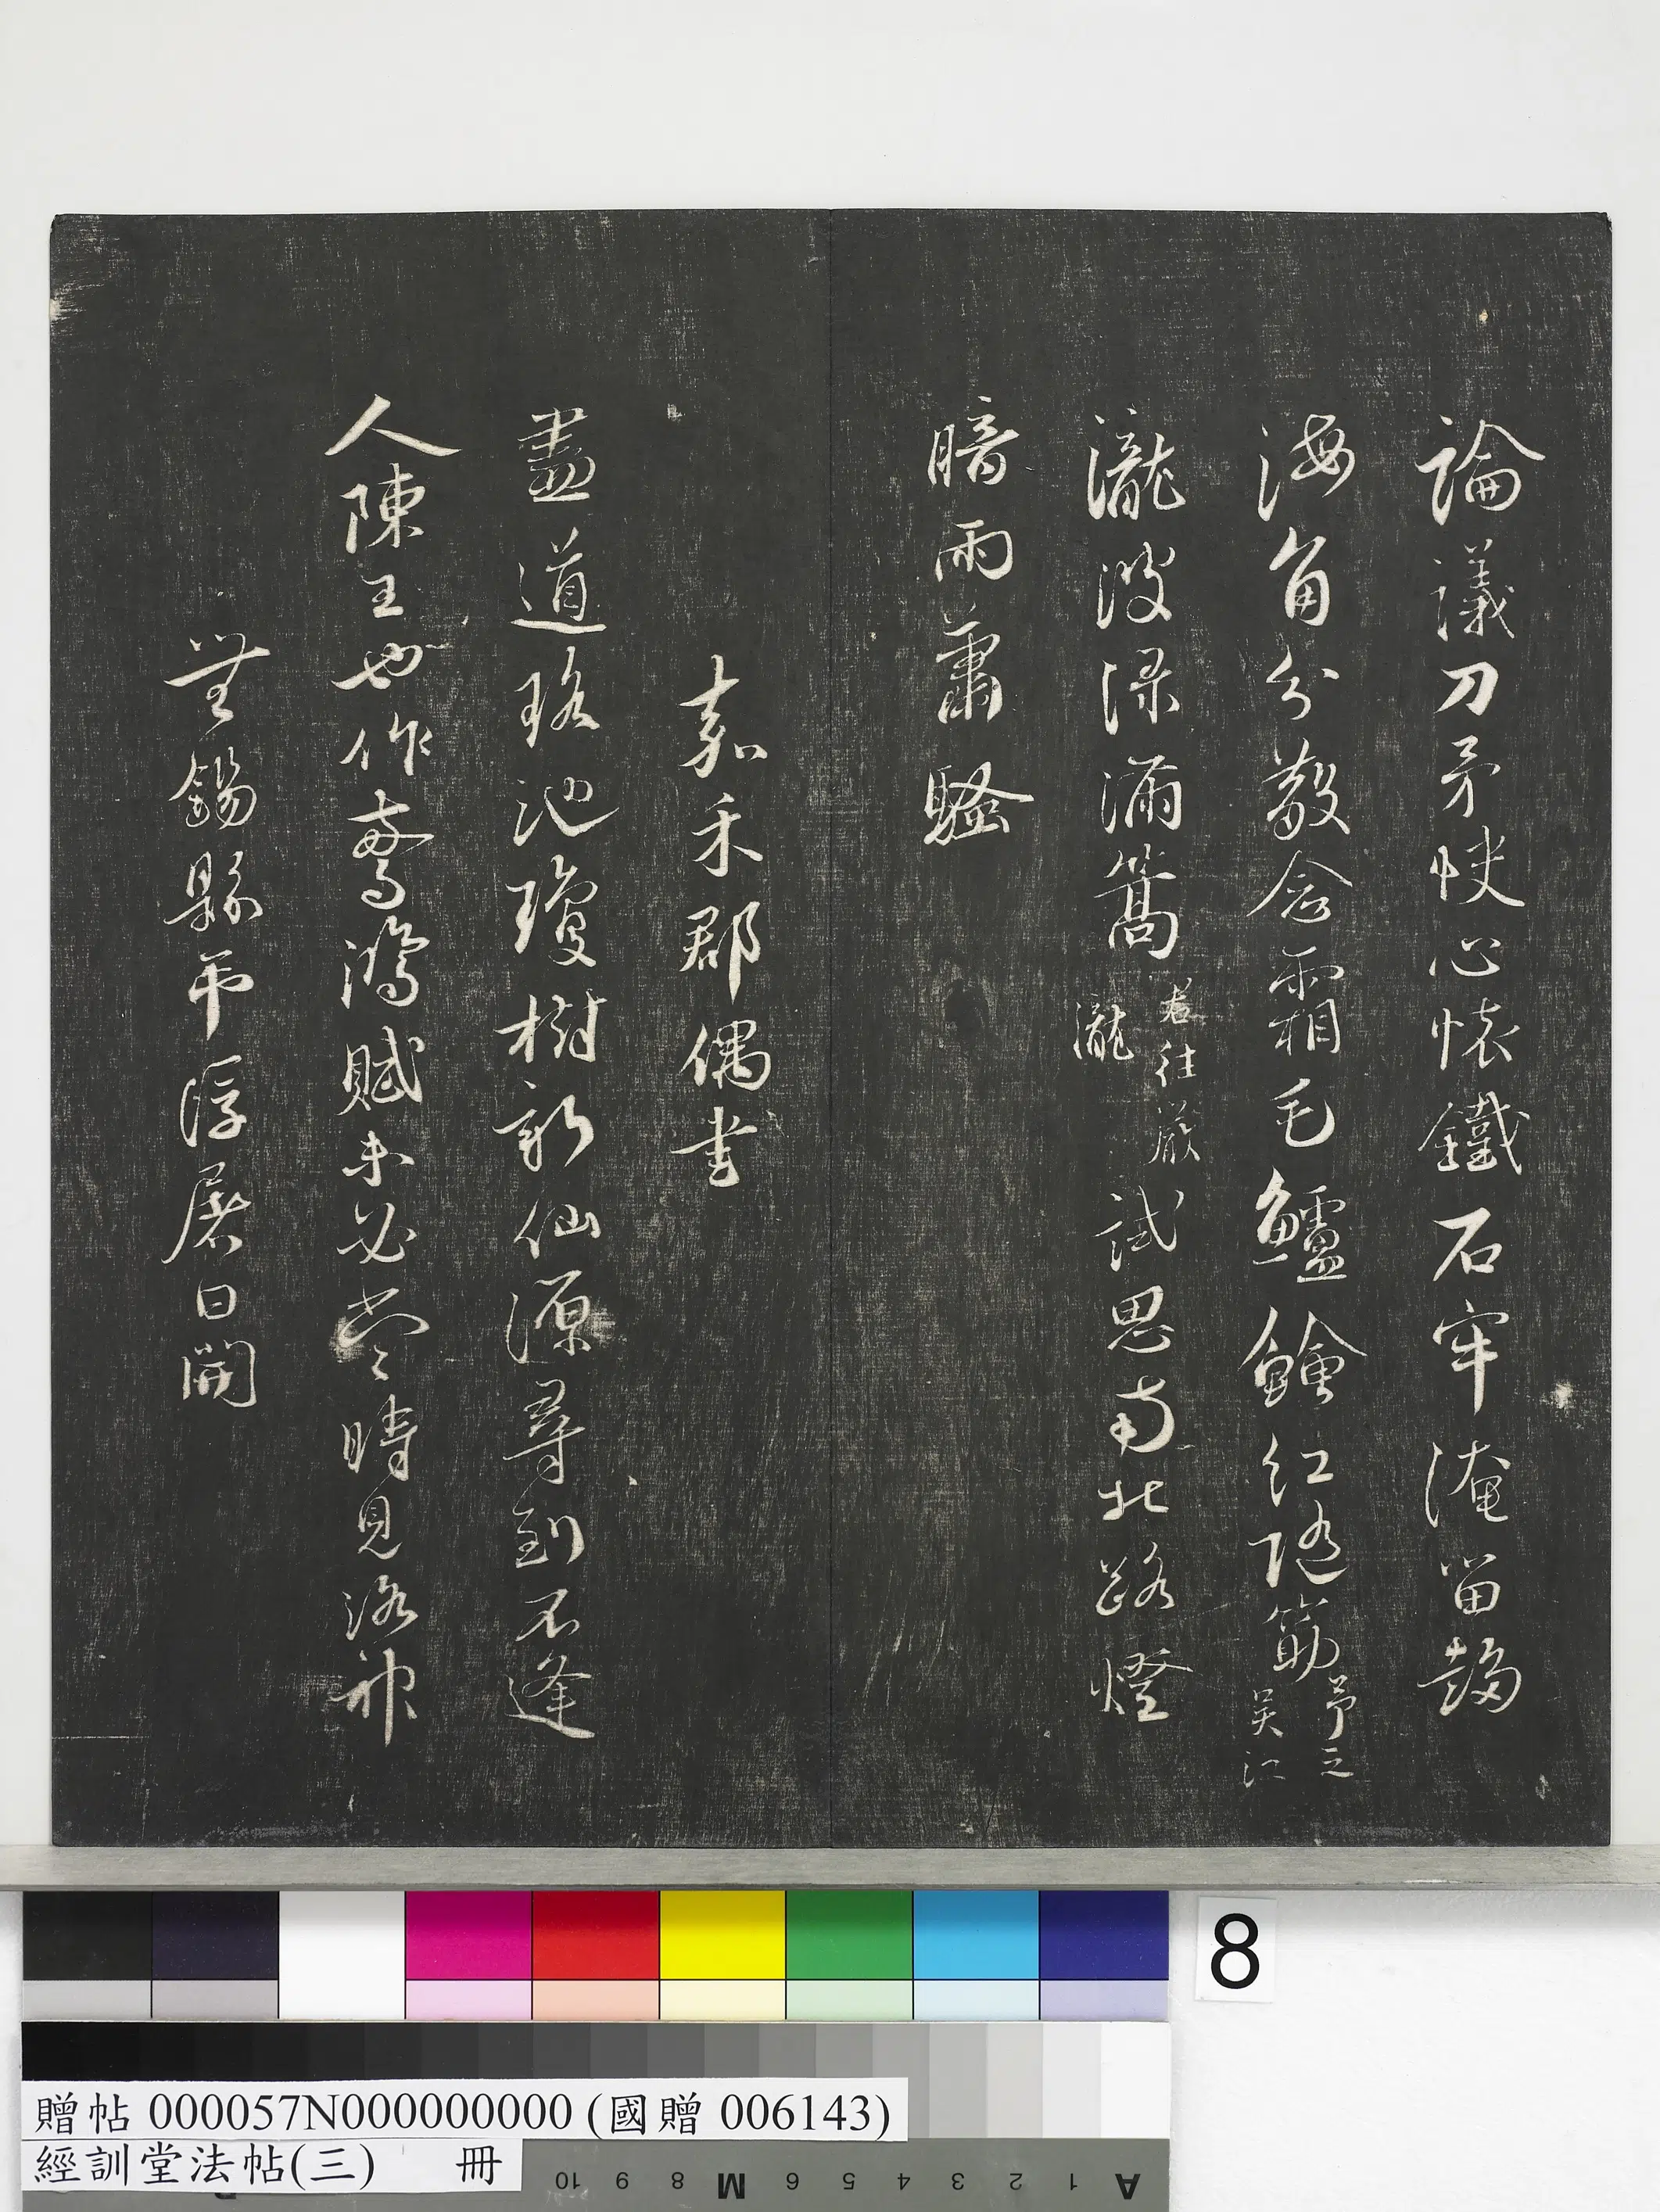 論議刀矛快心懷鐵石牢淹留趨
海角分散念霜毛鱸鱠紅隨筯予之吳江
瀧波淥滿篙君往嚴瀧試思南北路燈
暗雨蕭騷
嘉禾郡偶書
盡道瑤池瓊樹新仙源尋到不逢
人陳王也作驚鴻賦未必當時見洛神
無錫縣弔浮屠日開
8
贈帖 000057N000000000 (國贈 006143)
經訓堂法帖(三) 冊
10 9 8 M 6 5 4 3 2 1 A